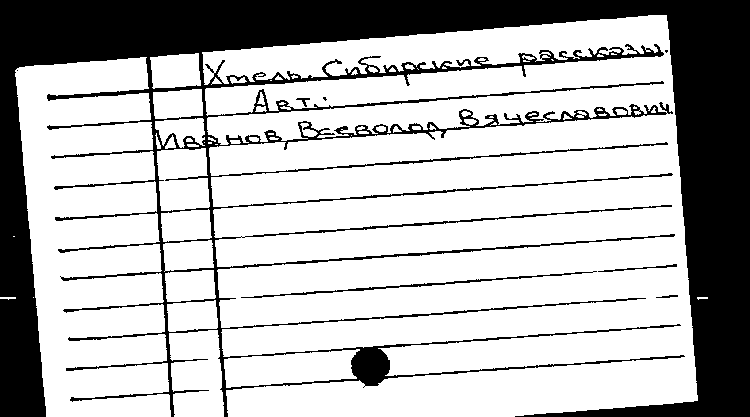 Хмель. Сибирские рассказы.
Авт.:
Иванов, Всеволод Вячеславович